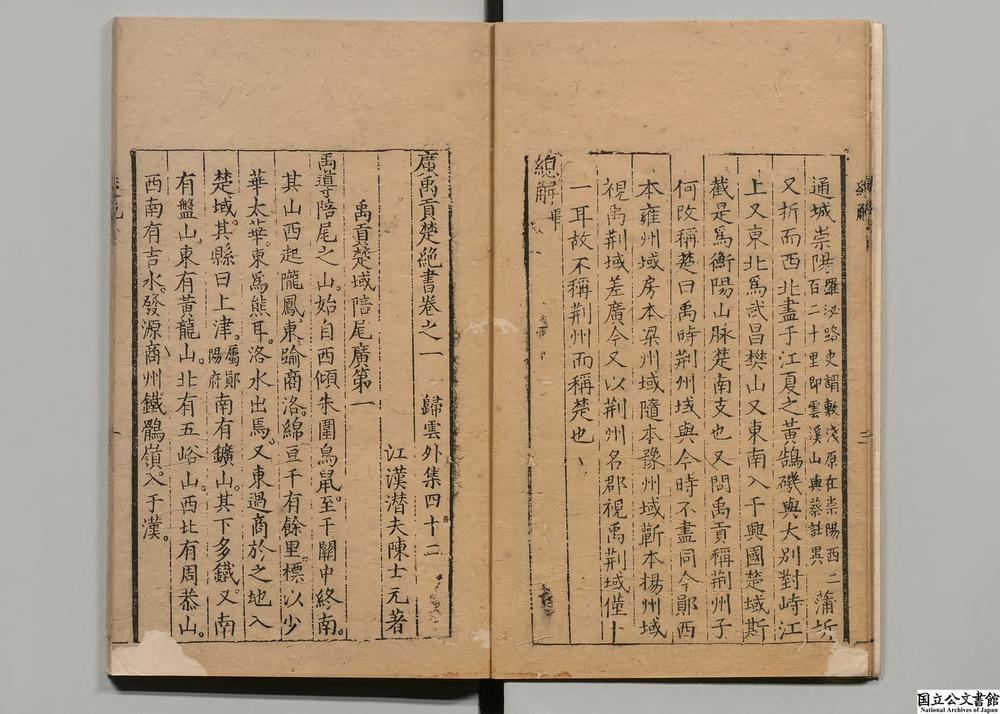 通城崇陽羅泌路史謂敷淺原在崇陽西二百二十里即雲溪山與蔡註異蒲圻
又折而西北盡于江夏之黃鵠磯與大別對峙江
上又東北爲武昌樊山又東南入于興國楚域斯
截是爲衡陽山脉楚南支也又問禹貢稱荊州子
何改稱楚曰禹時荊州域與今時不盡同今鄖西
本雍州域房本梁州域隨本豫州域蘄本揚州域
視禹荊域差廣今又以荊州名郡視禹荊域僅十
一耳故不稱荊州而稱楚也
總解畢
廣禹貢楚絶書卷之一 歸雲外集四十二
江漢潛夫陳士元著
禹貢楚域陪尾廣第一
禹導陪尾之山。始自西傾朱圉鳥鼠。至于關中終南。
其山西起隴鳳。東踰商洛。綿亘千有餘里。標以少
華太華。東爲熊耳。洛水出焉。又東過商於之地入
楚域。其縣曰上津。屬鄖陽府南有鑛山。其下多鐵。又南
有盤山。東有黃龍山。北有五峪山。西北有周恭山。
西南有吉水。發源商州鐵鶻嶺。入于漢。
総解
三
一
国立公文書館
National Archives of Japan